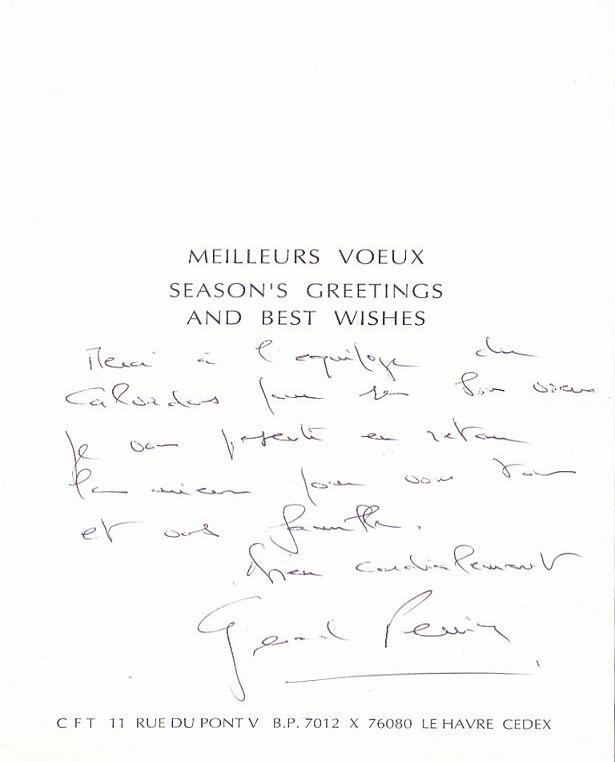 MEILLEURS VOEUX
SEASON'S GREETINGS
AND BEST WISHES
Merci à l'équipage du
Calvados pour ses bons vœux
Je vous présente en retour
les miens pour vous tous
et vos familles.
Bien cordialement
Gérard
C F T 11 RUE DU PONT V B.P. 7012 X 76080 LE HAVRE CEDEX